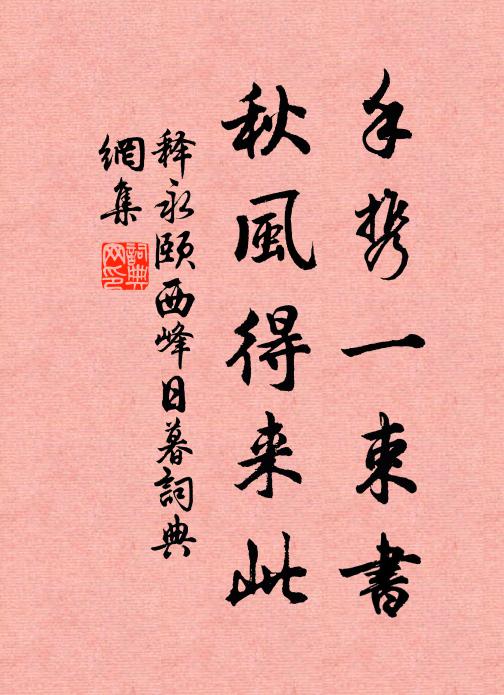 手携一束書
秋風得来此
釋永頤西峰日暮詞典
網集
詞典網印